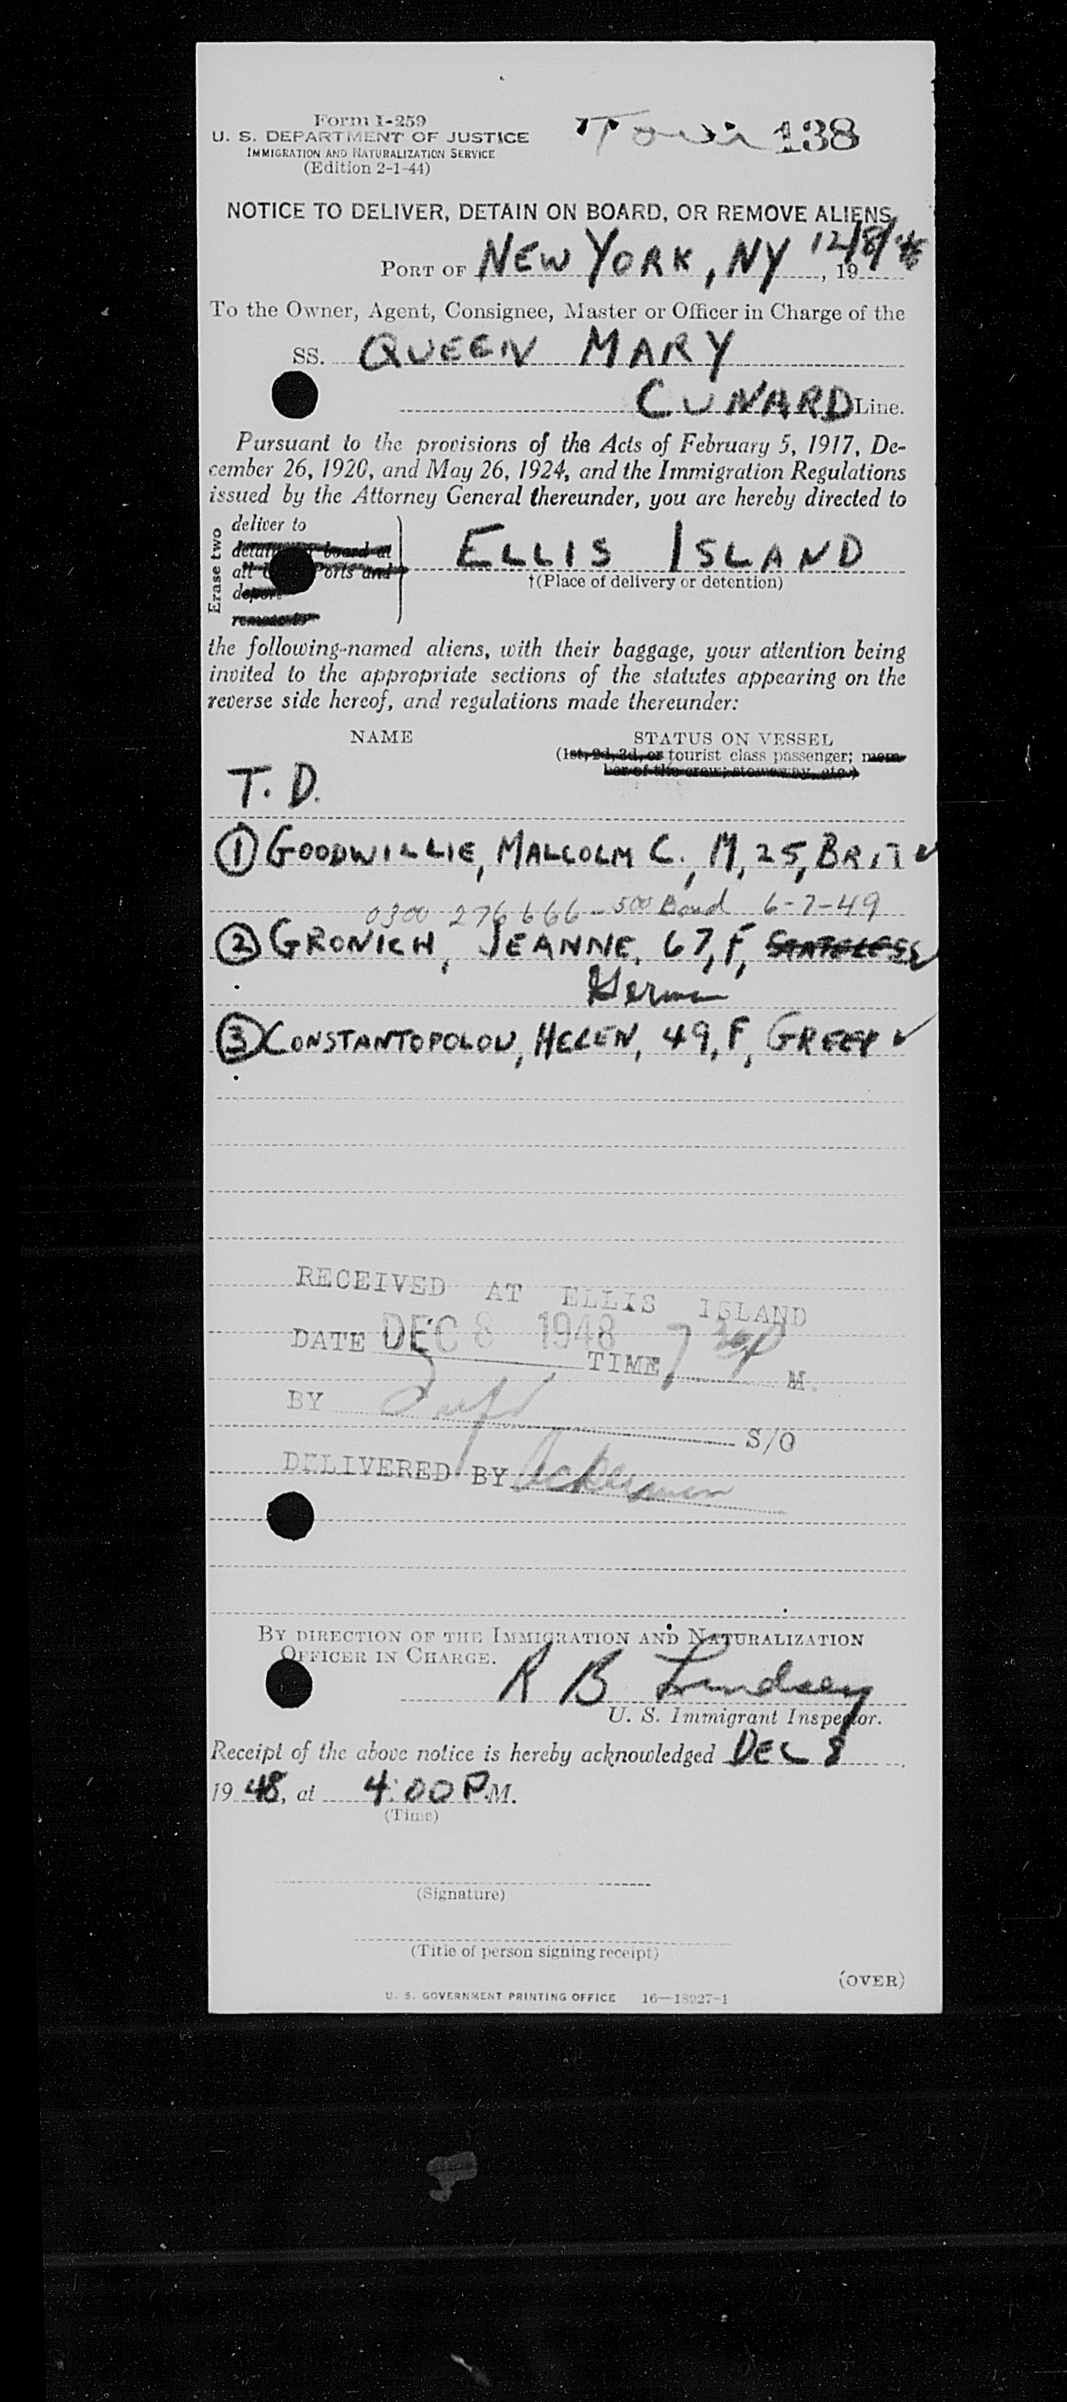 Form I-259
U. S. DEPARTMENT OF JUSTICE
IMMIGRATION AND NATURALIZATION SERVICE
(Edition 2-1-44)
138
NOTICE TO DELIVER, DETAIN ON BOARD, OR REMOVE ALIENS
PORT OF NEW YORK, NY 12/8/48, 19
To the Owner, Agent, Consignee, Master or Officer in Charge of the
SS. QUEEN MARY
CUNARD Line.
Pursuant to the provisions of the Acts of February 5, 1917, De-
cember 26, 1920, and May 26, 1924, and the Immigration Regulations
issued by the Attorney General thereunder, you are hereby directed to
Erase two
deliver to
detain board at
all Ports and
deport
remove to
ELLIS ISLAND
†(Place of delivery or detention)
the following-named aliens, with their baggage, your attention being
invited to the appropriate sections of the statutes appearing on the
reverse side hereof, and regulations made thereunder:
NAME STATUS ON VESSEL
(1st, 2d, 3d, or tourist class passenger; mem-
ber of the crew; stowaway, etc.)
T. D.
① GOODWILLIE, MALCOLM C., M, 25, BRIT ✓
0300 276666 - 500 Bond 6-7-49
② GRONICH, JEANNE, 67, F, STATELESS ✓
German
③ CONSTANTOPOLOU, HELEN, 49, F, GREEK ✓
RECEIVED AT ELLIS ISLAND
DATE DEC 8 1948 TIME 7 30 P M.
BY S/O
DELIVERED BY Ackerman
BY DIRECTION OF THE IMMIGRATION AND NATURALIZATION
OFFICER IN CHARGE.
R B Lindsey
U. S. Immigrant Inspector.
Receipt of the above notice is hereby acknowledged DEC 8,
19 48, at 4:00 P.M.
(Time)
(Signature)
(Title of person signing receipt)
(OVER)
U. S. GOVERNMENT PRINTING OFFICE 16—18927-1